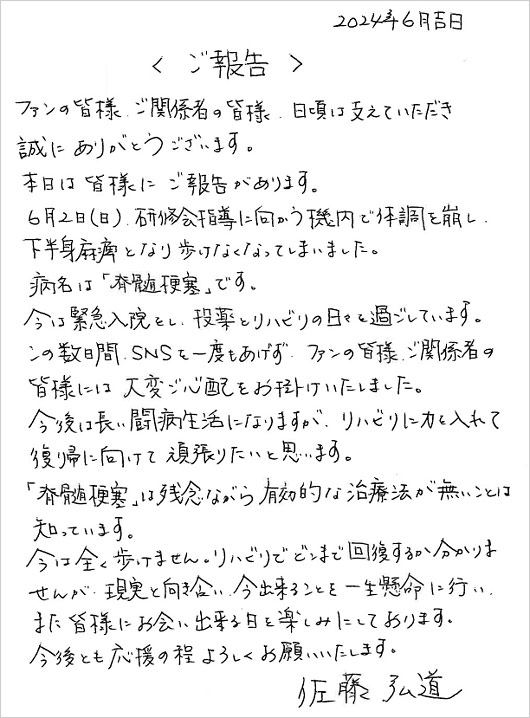 2024年6月吉日
＜ ご報告 ＞
ファンの皆様、ご関係者の皆様、日頃は支えていただき
誠にありがとうございます。
本日は皆様にご報告があります。
6月2日(日)、研修会指導に向かう機内で体調を崩し、
下半身麻痺となり歩けなくなってしまいました。
病名は「脊髄梗塞」です。
今は緊急入院をし、投薬とリハビリの日々を過ごしています。
この数日間、SNSを一度もあげず、ファンの皆様、ご関係者の
皆様には大変ご心配をお掛けいたしました。
今後は長い闘病生活になりますが、リハビリに力を入れて
復帰に向けて頑張りたいと思います。
「脊髄梗塞」は残念ながら有効的な治療法が無いことは
知っています。
今は全く歩けません。リハビリでどこまで回復するか分かりま
せんが、現実と向き合い、今出来ることを一生懸命に行い、
また皆様にお会い出来る日を楽しみにしております。
今後とも応援の程よろしくお願いいたします。
佐藤弘道